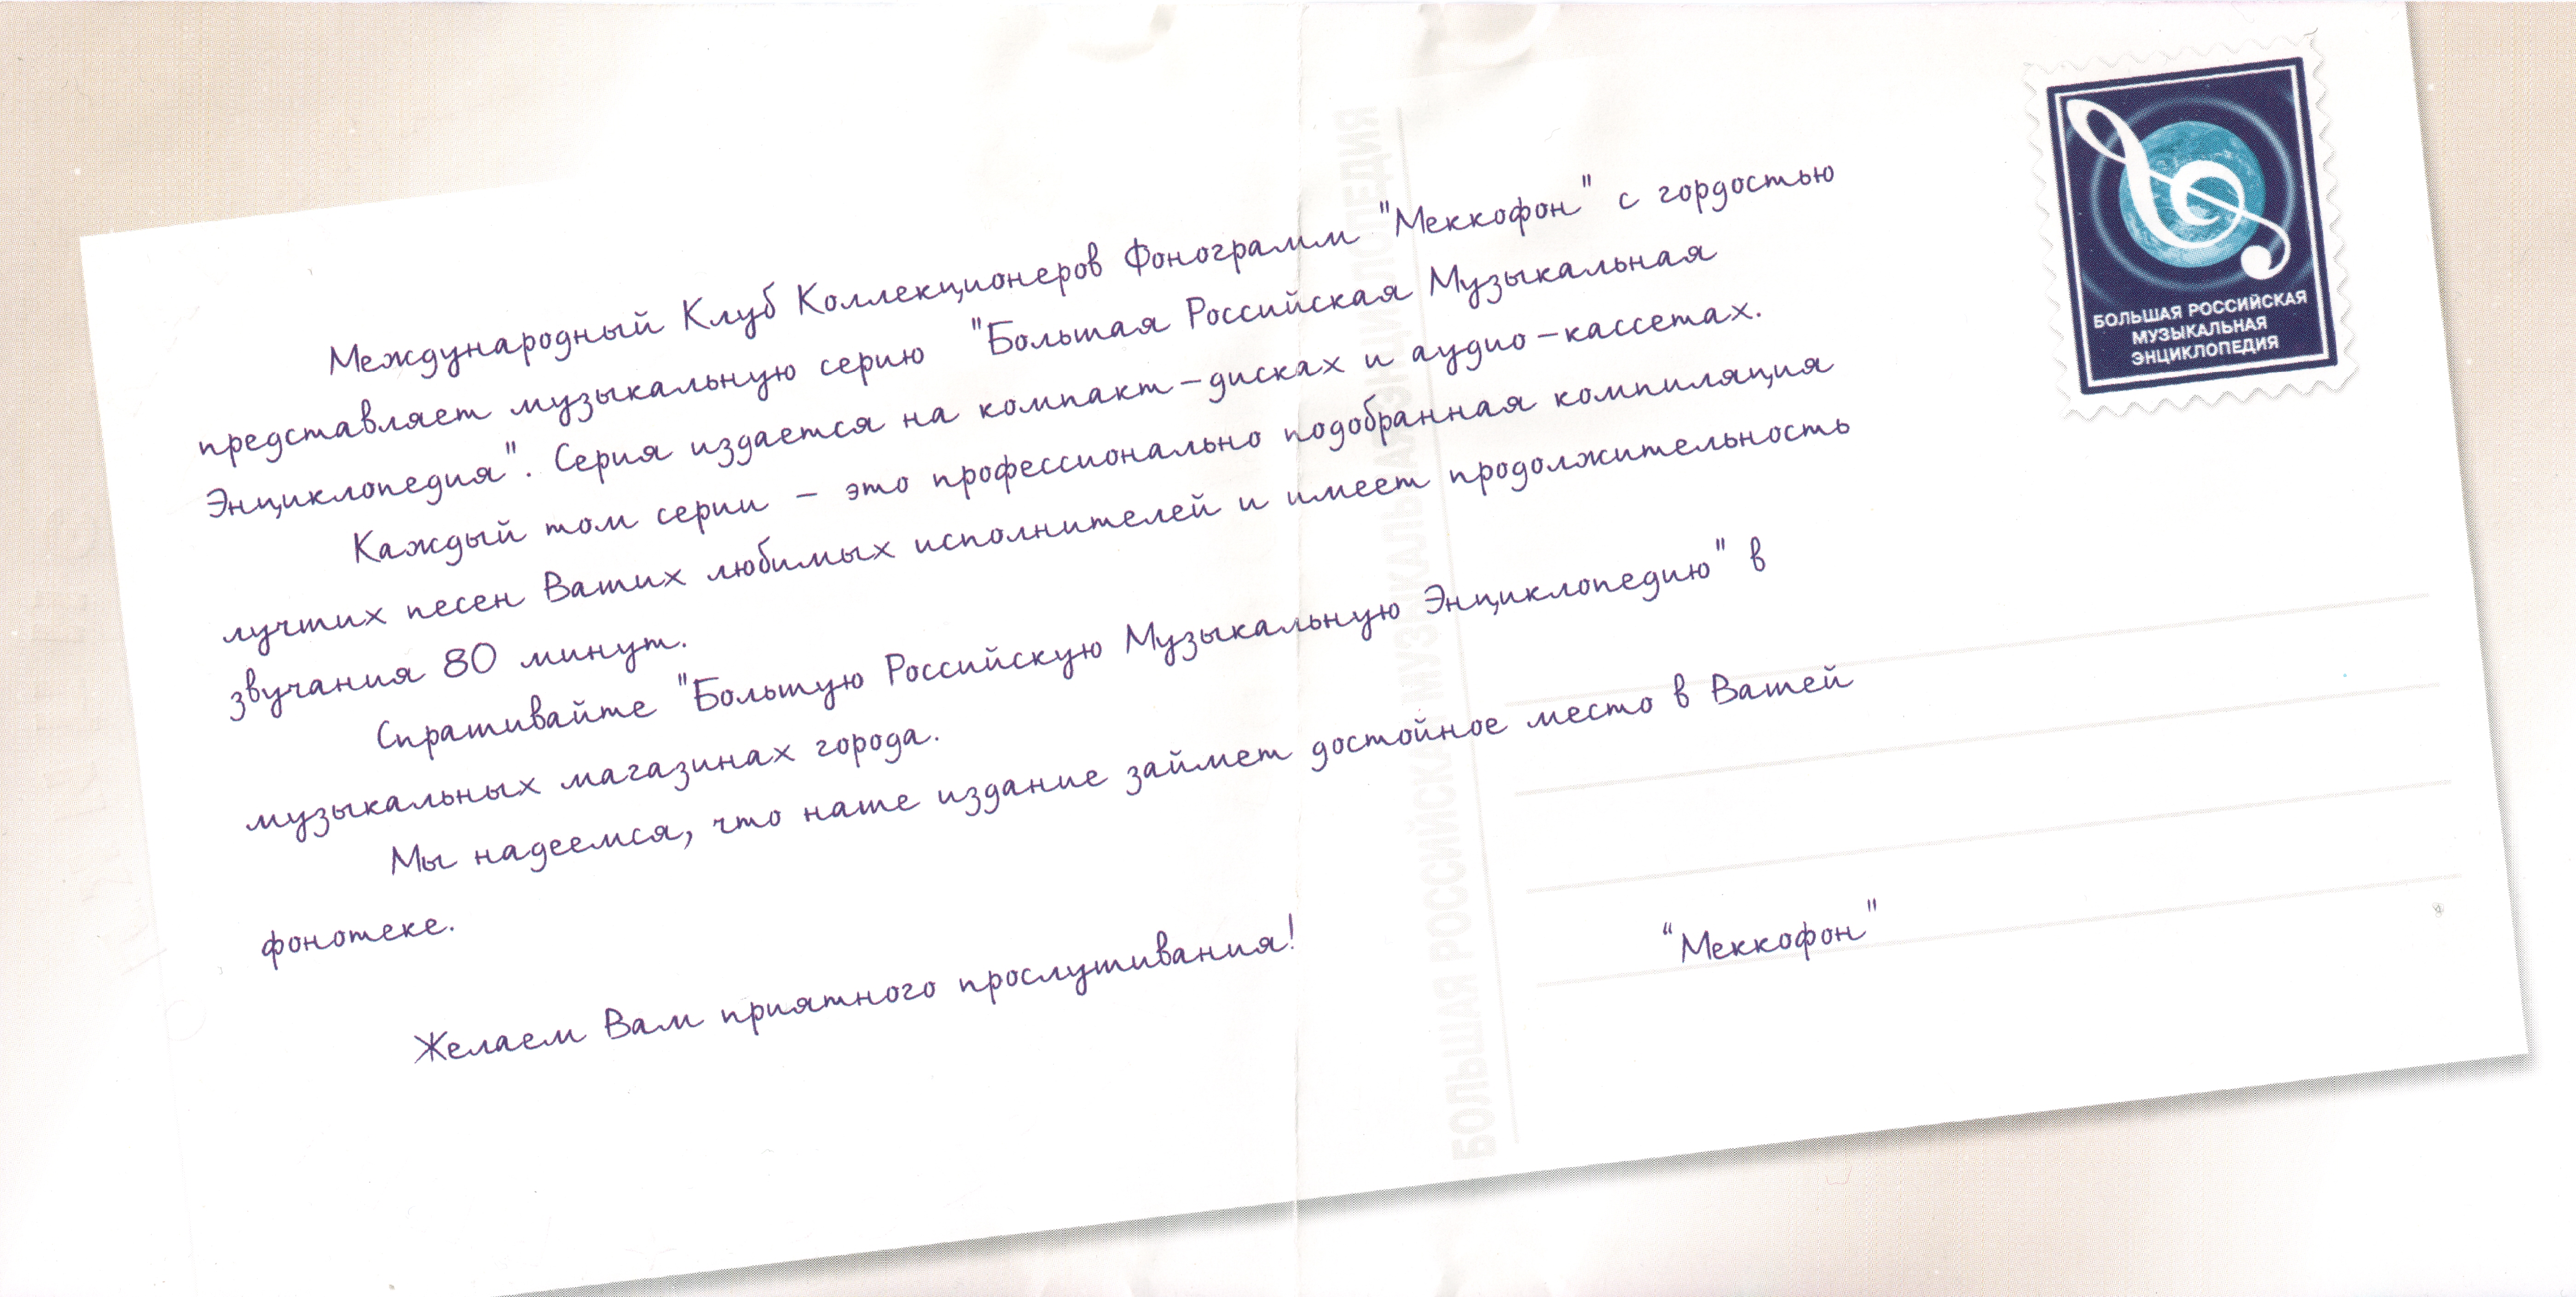 Международный Клуб Коллекционеров Фонограмм "Меккофон" с гордостью
представляет музыкальную серию "Большая Российская Музыкальная
Энциклопедия". Серия издается на компакт-дисках и аудио-кассетах.
Каждый том серии - это профессионально подобранная компиляция
лучших песен Ваших любимых исполнителей и имеет продолжительность
звучания 80 минут.
Спрашивайте "Большую Российскую Музыкальную Энциклопедию" в
музыкальных магазинах города.
Мы надеемся, что наше издание займет достойное место в Вашей
фонотеке.
Желаем Вам приятного прослушивания!
"Меккофон"
БОЛЬШАЯ РОССИЙСКАЯ
МУЗЫКАЛЬНАЯ
ЭНЦИКЛОПЕДИЯ
БОЛЬШАЯ РОССИЙСКАЯ МУЗЫКАЛЬНАЯ ЭНЦИКЛОПЕДИЯ